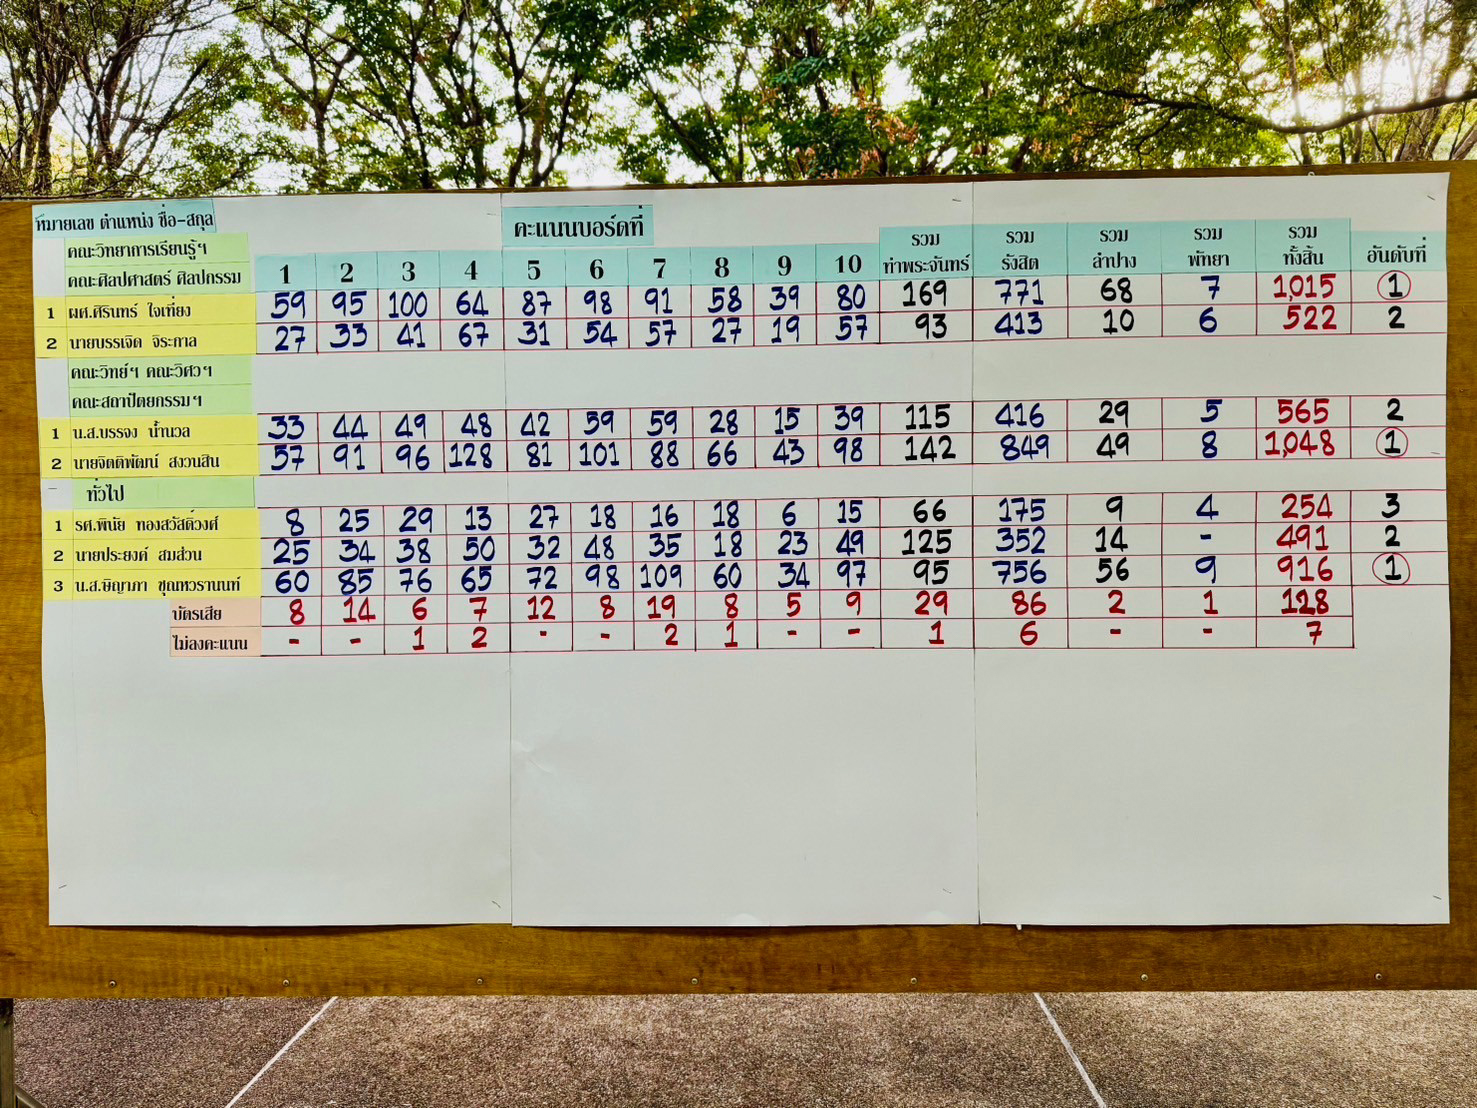 หมายเลข ตำแหน่ง ชื่อ-สกุล คะแนนบอร์ดที่
คณะวิทยาการเรียนรู้ฯ
คณะศิลปศาสตร์ ศิลปกรรม 1 2 3 4 5 6 7 8 9 10 รวม ท่าพระจันทร์ รวม รังสิต รวม ลำปาง รวม พัทยา รวม ทั้งสิ้น อันดับที่
1 ผศ.ศิรินทร์ ใจเที่ยง 59 95 100 64 87 98 91 58 39 80 169 771 68 7 1,015 1
2 นายบรรเจิด จิระกาล 27 33 41 67 31 54 57 27 19 57 93 413 10 6 522 2
คณะวิทย์ฯ คณะวิศวฯ
คณะสถาปัตยกรรมฯ
1 น.ส.บรรจง น้ำนวล 33 44 49 48 42 59 59 28 15 39 115 416 29 5 565 2
2 นายจิตติพัฒน์ สงวนสิน 57 91 96 128 81 101 88 66 43 98 142 849 49 8 1,048 1
ทั่วไป
1 รศ.พินัย ทองสวัสดิ์วงศ์ 8 25 29 13 27 18 16 18 6 15 66 175 9 4 254 3
2 นายประยงค์ สมส่วน 25 34 38 50 32 48 35 18 23 49 125 352 14 - 491 2
3 น.ส.ษิญาภา ชุณหวรานนท์ 60 85 76 65 72 98 109 60 34 97 95 756 56 9 916 1
บัตรเสีย 8 14 6 7 12 8 19 8 5 9 29 86 2 1 128
ไม่ลงคะแนน - - 1 2 - - 2 1 - - 1 6 - - 7